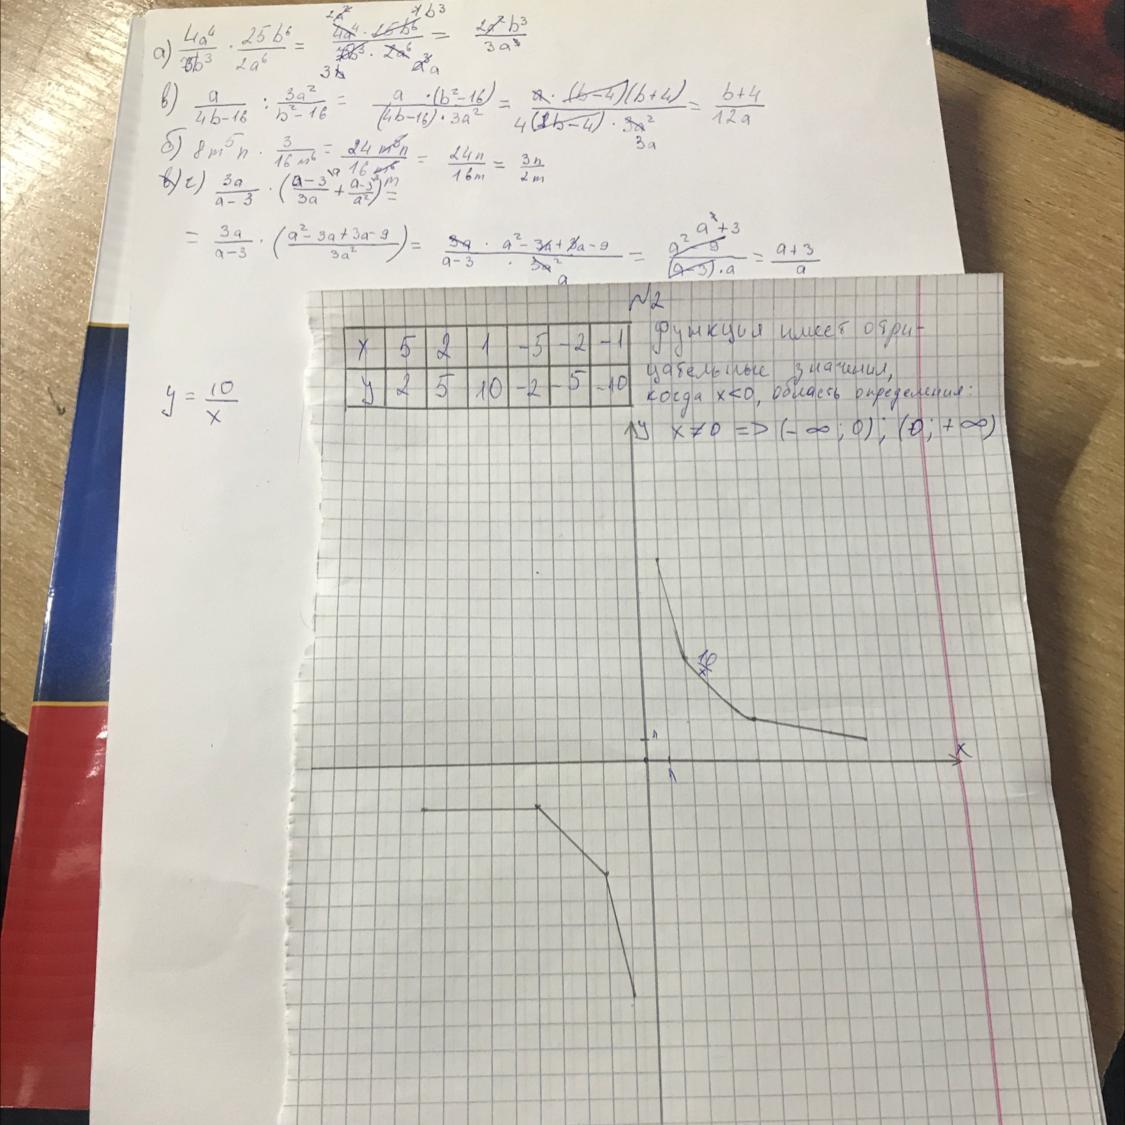 а) 4a⁴/3b³ · 25b⁶/2a⁶ = 4a⁴ · 25b⁶ / · 2a⁶ = 2a²b³/3a³
в) a/4b-16 : 3a²/b²-16 = a · (b²-16)/(4b-16) · 3a² = a · (b-4)(b+4)/4(b-4) · 3a² = b+4/12a
б) 8m⁵n · 3/16m⁶ = 24m⁵n/16m⁶ = 24n/16m = 3n/2m
г) 3a/a-3 · (a-3/3a + a-3/a²) =
= 3a/a-3 · (a²-3a+3a-9/3a²) = 3a · a²-3a+3a-9/a-3 · 3a² = /(a-3) · a = a+3/a
№2
x 5 2 1 -5 -2 -1
y 2 5 10 -2 -5 -10
функция имеет отри-
цательные значения,
когда x<0, область определения:
x≠0 => (-∞; 0); (0; +∞)
y = 10/x
y
10/x
1
x
1